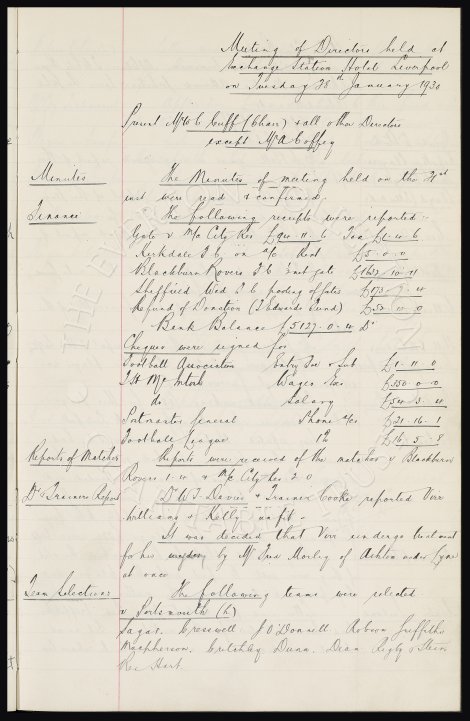 Meeting of Directors held at
Exchange Station Hotel Liverpool
on Tuesday 28th January 1930
Present Mr W C Cuff (Chair) & all other Directors
except Mr A Coffey
Minutes The Minutes of meeting held on the 21st
inst were read & confirmed.
Finance The following receipts were reported:-
Gate v M/c City Res £94-11-6 Tax £2-4-6
Kirkdale F.C. on a/c Rent £5-0-0
Blackburn Rovers F.C. gate
Sheffield Wed F.C. pooling of gates £173-
Refund of Donation (J Edwards Fund) £50-0-0
Bank Balance £5127-0-4 Dr
Cheques were signed for
Football Association Entry Fee & Sub £1-11-0
T H McIntosh Wages £350-0-0
do Salary £54-3-4
Postmaster General Phone a/cs £21-16-1
Football League 1% £16-5-8
Reports of Matches Reports were received of the matches v Blackburn
Rovers & M/c City Res 2-0
Dr & Trainers Report Dr W J Davies & Trainer Cooke reported Virr
Williams & Kelly unfit -
It was decided that Virr undergo treatment
for his by Mr Morley of Ashton under Lyne
at once
Team Selections The following teams were selected
v Portsmouth (h)
Sagar. Cresswell J O'Donnell. Robson Griffiths
Macpherson. Critchley Dunn. Dean. Rigby & Stein
Res Hart